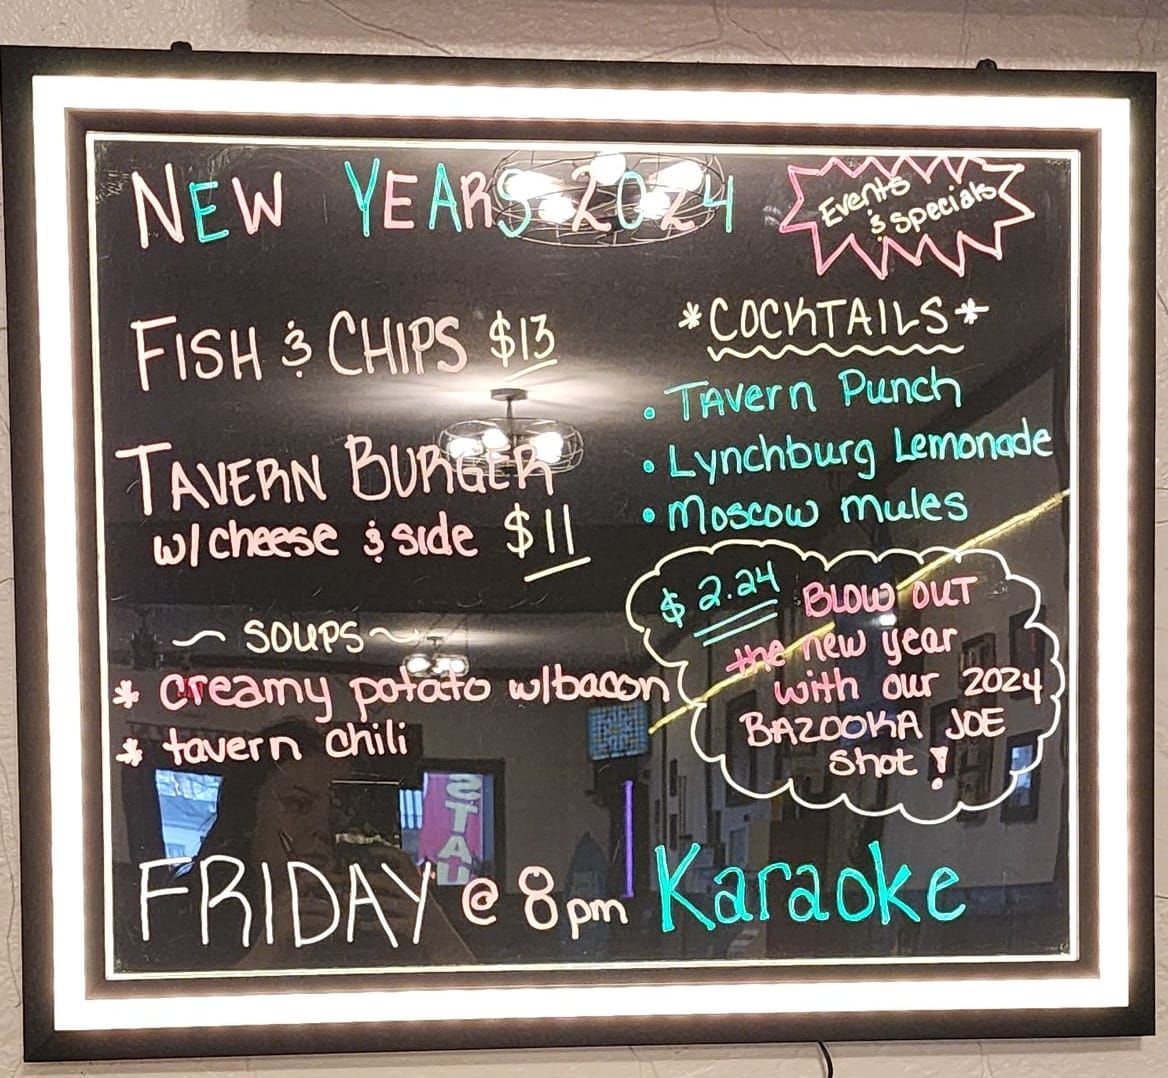 NEW YEARS 2024
Events
& Specials
FISH & CHIPS $13
TAVERN BURGER
w/cheese & side $11
~ SOUPS ~
* creamy potato w/bacon
* tavern chili
*COCKTAILS*
• TAvern Punch
• Lynchburg Lemonade
• Moscow mules
$ 2.24 BLOW OUT
the new year
with our 2024
BAZOOKA JOE
Shot !
FRIDAY @ 8pm Karaoke